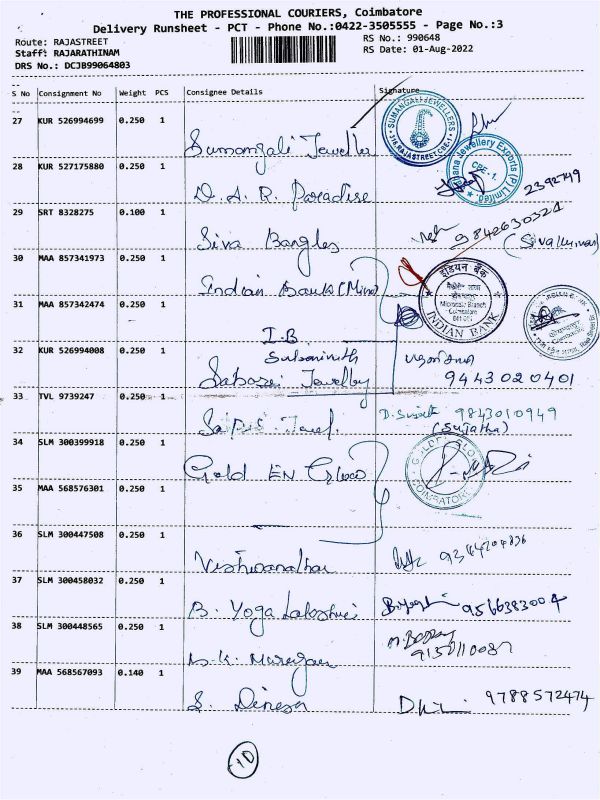 THE PROFESSIONAL COURIERS, Coimbatore
Delivery Runsheet - PCT - Phone No.:0422-3505555 - Page No.:3
Route: RAJASTREET
RS No.: 990648
Staff: RAJARATHINAM
RS Date: 01-Aug-2022
DRS No.: DCJB99064803
S No Consignment No Weight PCS Consignee Details Signature
27 KUR 526994699 0.250 1
SUMANGALI JEWELLERS
RAJA STREET, CBE-1
Sumangali Jeweller
28 KUR 527175880 0.250 1
Jewellery Exports (P) Limited
CBE-1.
D. A. R. Paradise
2392749
29 SRT 8328275 0.100 1
Siva Bangles
9842630321
(Sivakumar)
30 MAA 857341973 0.250 1
Indian Bank (Mino)
इंडियन बैंक
INDIAN BANK
31 MAA 857342474 0.250 1
I.B
32 KUR 526994008 0.250 1
Sabarai Jewelby
9443020401
33 TVL 9739247 0.250 1
9843010949
(Sujatha)
34 SLM 300399918 0.250 1
Gold EN Glow
GOLDEN GLOW
COIMBATORE
35 MAA 568576301 0.250 1
36 SLM 300447508 0.250 1
Vishwanathan
37 SLM 300458032 0.250 1
B. Yoga Lakshmi
9566383004
38 SLM 300448565 0.250 1
K. Murugan
39 MAA 568567093 0.140 1
S. Dinesh
9788572474
10